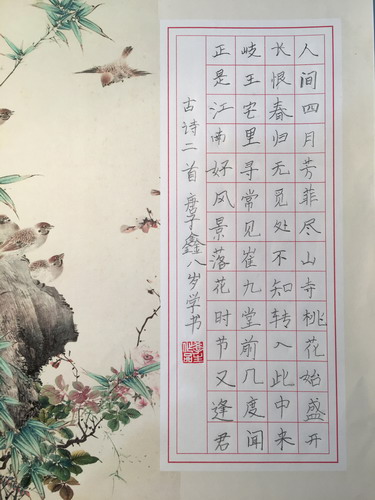 人间四月芳菲尽山寺桃花始盛开
长恨春归无觅处不知转入此中来
岐王宅里寻常见崔九堂前几度闻
正是江南好风景落花时节又逢君
古诗二首 唐子鑫八岁学书